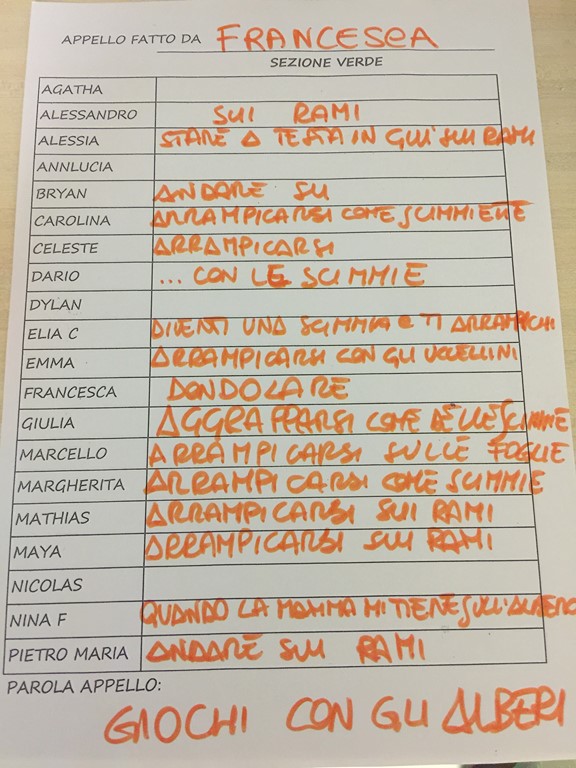 APPELLO FATTO DA FRANCESCA
SEZIONE VERDE
AGATHA
ALESSANDRO SUI RAMI
ALESSIA STARE A TESTA IN GIÙ SUI RAMI
ANNLUCIA
BRYAN ANDARE SU
CAROLINA ARRAMPICARSI COME SCIMMIETTE
CELESTE ARRAMPICARSI
DARIO ... CON LE SCIMMIE
DYLAN
ELIA C DIVENTI UNA SCIMMIA E TI ARRAMPICHI
EMMA ARRAMPICARSI CON GLI UCCELLINI
FRANCESCA DONDOLARE
GIULIA AGGRAPPARSI COME DELLE SCIMMIE
MARCELLO ARRAMPICARSI SULLE FOGLIE
MARGHERITA ARRAMPICARSI COME SCIMMIE
MATHIAS ARRAMPICARSI SUI RAMI
MAYA ARRAMPICARSI SUI RAMI
NICOLAS
NINA F QUANDO LA MAMMA MI TIENE SULL'ALBERO
PIETRO MARIA ANDARE SUI RAMI
PAROLA APPELLO:
GIOCHI CON GLI ALBERI